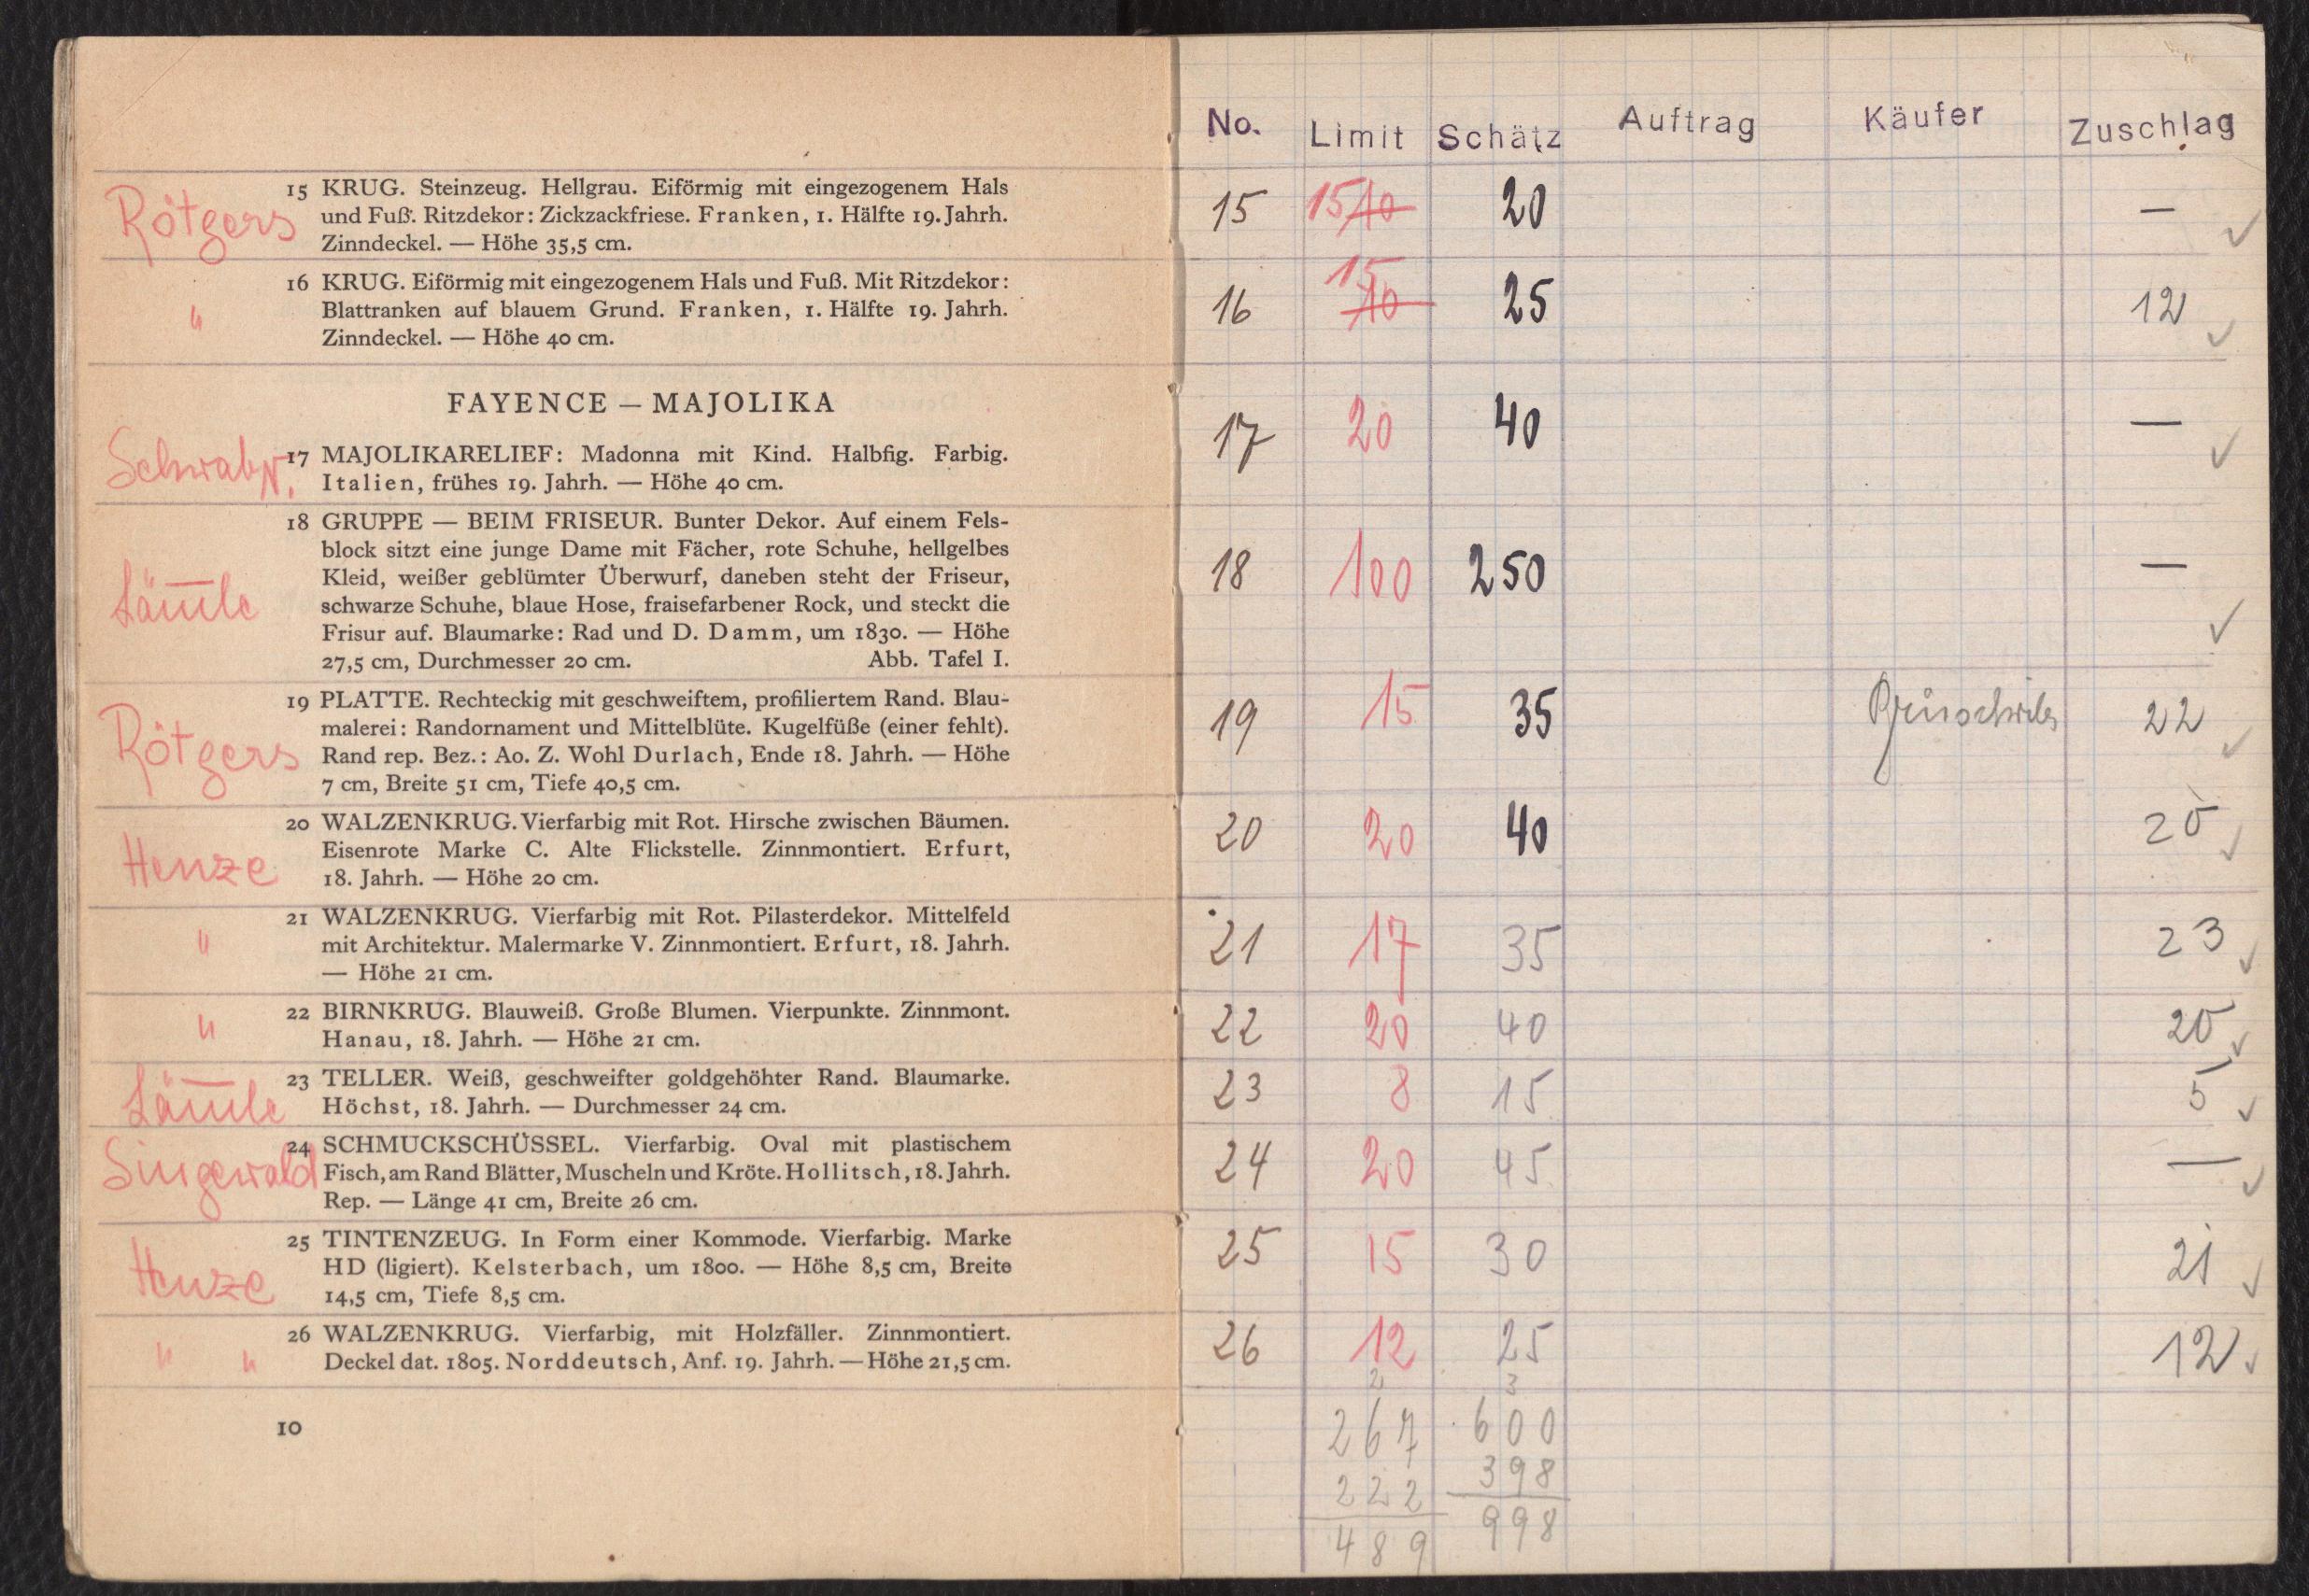 Rötgers
15 KRUG. Steinzeug. Hellgrau. Eiförmig mit eingezogenem Hals
und Fuß. Ritzdekor: Zickzackfriese. Franken, 1. Hälfte 19. Jahrh.
Zinndeckel. — Höhe 35,5 cm.
" 16 KRUG. Eiförmig mit eingezogenem Hals und Fuß. Mit Ritzdekor:
Blattranken auf blauem Grund. Franken, 1. Hälfte 19. Jahrh.
Zinndeckel. — Höhe 40 cm.
FAYENCE — MAJOLIKA
17 MAJOLIKARELIEF: Madonna mit Kind. Halbfig. Farbig.
Italien, frühes 19. Jahrh. — Höhe 40 cm.
18 GRUPPE — BEIM FRISEUR. Bunter Dekor. Auf einem Fels-
block sitzt eine junge Dame mit Fächer, rote Schuhe, hellgelbes
Kleid, weißer geblümter Überwurf, daneben steht der Friseur,
schwarze Schuhe, blaue Hose, fraisefarbener Rock, und steckt die
Frisur auf. Blaumarke: Rad und D. Damm, um 1830. — Höhe
27,5 cm, Durchmesser 20 cm. Abb. Tafel I.
Rötgers
19 PLATTE. Rechteckig mit geschweiftem, profiliertem Rand. Blau-
malerei: Randornament und Mittelblüte. Kugelfüße (einer fehlt).
Rand rep. Bez.: Ao. Z. Wohl Durlach, Ende 18. Jahrh. — Höhe
7 cm, Breite 51 cm, Tiefe 40,5 cm.
Henze
20 WALZENKRUG. Vierfarbig mit Rot. Hirsche zwischen Bäumen.
Eisenrote Marke C. Alte Flickstelle. Zinnmontiert. Erfurt,
18. Jahrh. — Höhe 20 cm.
" 21 WALZENKRUG. Vierfarbig mit Rot. Pilasterdekor. Mittelfeld
mit Architektur. Malermarke V. Zinnmontiert. Erfurt, 18. Jahrh.
— Höhe 21 cm.
" 22 BIRNKRUG. Blauweiß. Große Blumen. Vierpunkte. Zinnmont.
Hanau, 18. Jahrh. — Höhe 21 cm.
23 TELLER. Weiß, geschweifter goldgehöhter Rand. Blaumarke.
Höchst, 18. Jahrh. — Durchmesser 24 cm.
Singewald
24 SCHMUCKSCHÜSSEL. Vierfarbig. Oval mit plastischem
Fisch, am Rand Blätter, Muscheln und Kröte. Hollitsch, 18. Jahrh.
Rep. — Länge 41 cm, Breite 26 cm.
Henze
25 TINTENZEUG. In Form einer Kommode. Vierfarbig. Marke
HD (ligiert). Kelsterbach, um 1800. — Höhe 8,5 cm, Breite
14,5 cm, Tiefe 8,5 cm.
" " 26 WALZENKRUG. Vierfarbig, mit Holzfäller. Zinnmontiert.
Deckel dat. 1805. Norddeutsch, Anf. 19. Jahrh. — Höhe 21,5 cm.
10
No. Limit Schätz Auftrag Käufer Zuschlag
15 15 10 20 — ✓
16 15 10 25 12 ✓
17 20 40 — ✓
18 100 250 — ✓
19 15 35 22 ✓
20 20 40 20 ✓
21 17 35 23 ✓
22 20 40 20 ✓
23 8 15 5 ✓
24 20 45 — ✓
25 15 30 21 ✓
26 12 25 12 ✓
2 3
267 600
222 398
489 998